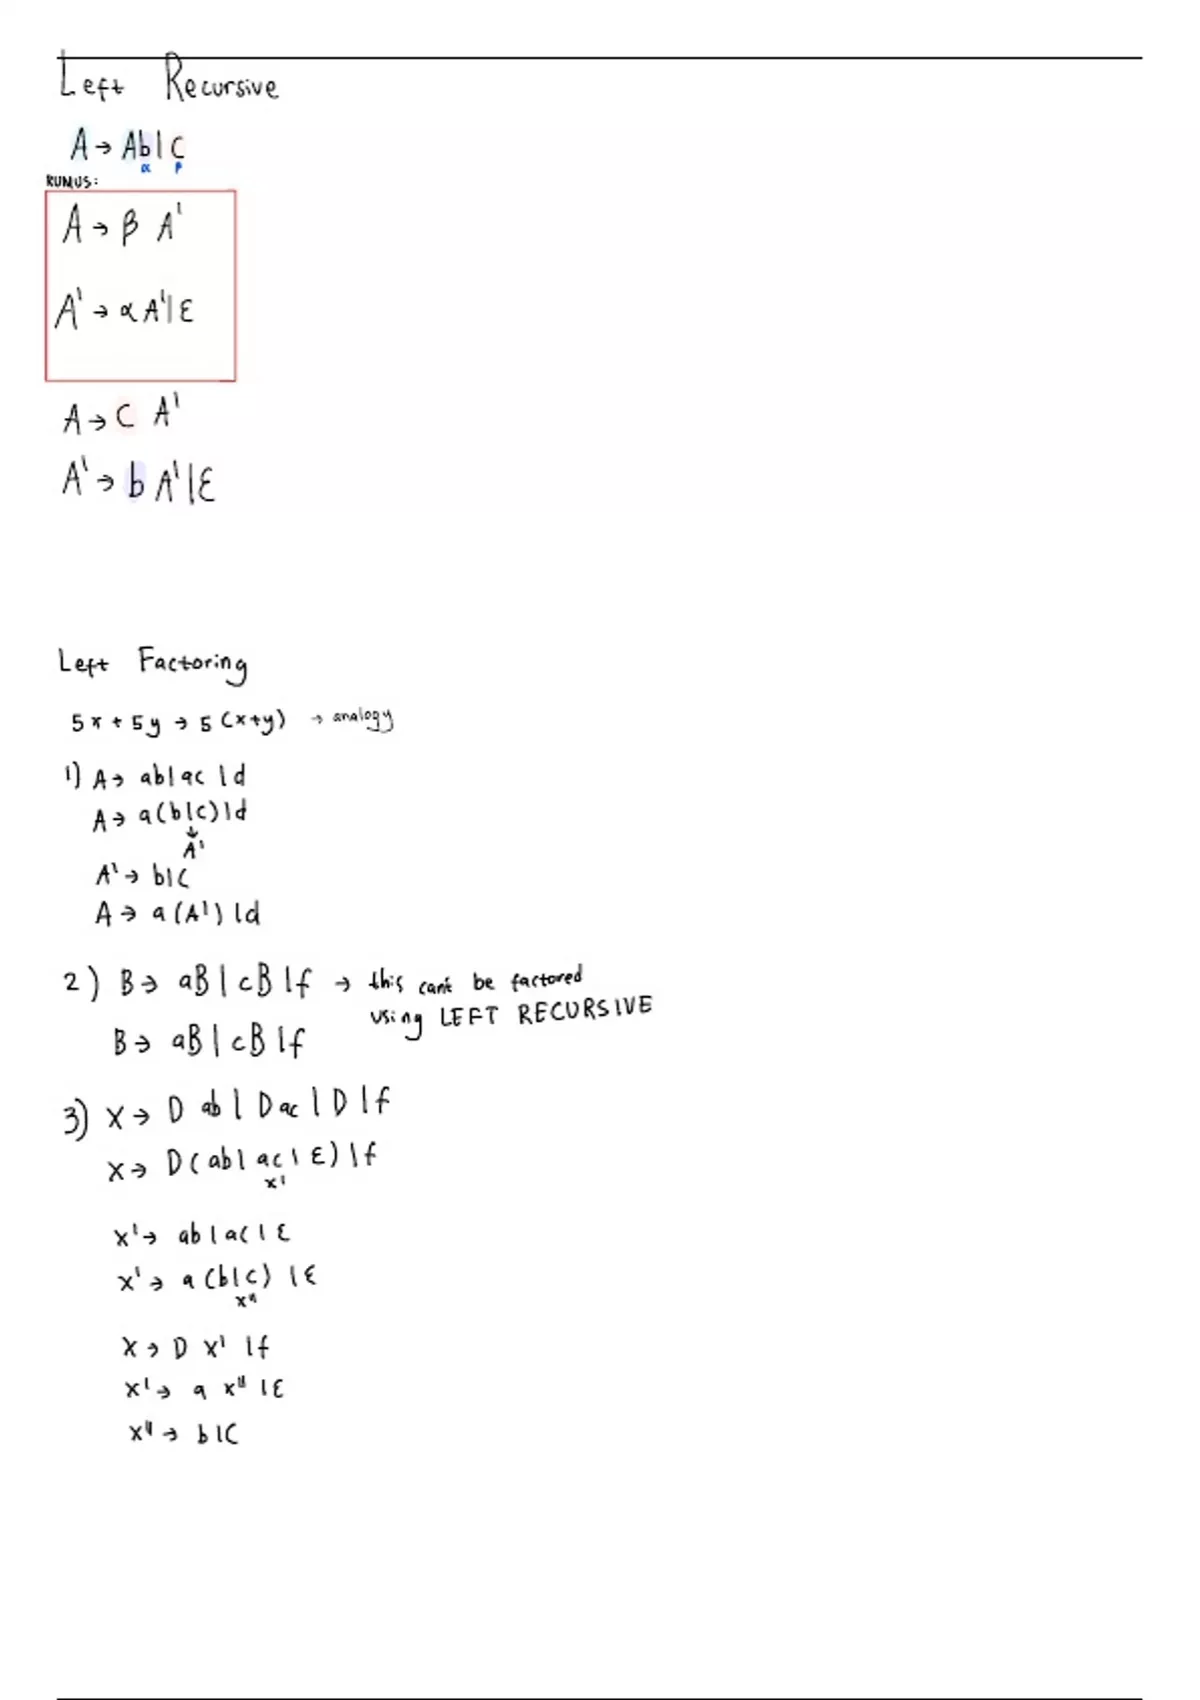 Left Recursive
A → Ab | C
α β
RUMUS:
A → β A'
A' → α A' | ε
A → C A'
A' → b A' | ε
Left Factoring
5x + 5y → 5 (x+y) → analogy
1) A → ab | ac | d
A → a (b | c) | d
↓
A'
A' → b | c
A → a (A') | d
2) B → aB | cB | f → this can't be factored
using LEFT RECURSIVE
B → aB | cB | f
3) X → D ab | D ac | D | f
X → D ( ab | ac | ε ) | f
X'
X' → ab | ac | ε
X' → a (b | c) | ε
X"
X → D X' | f
X' → a X" | ε
X" → b | c